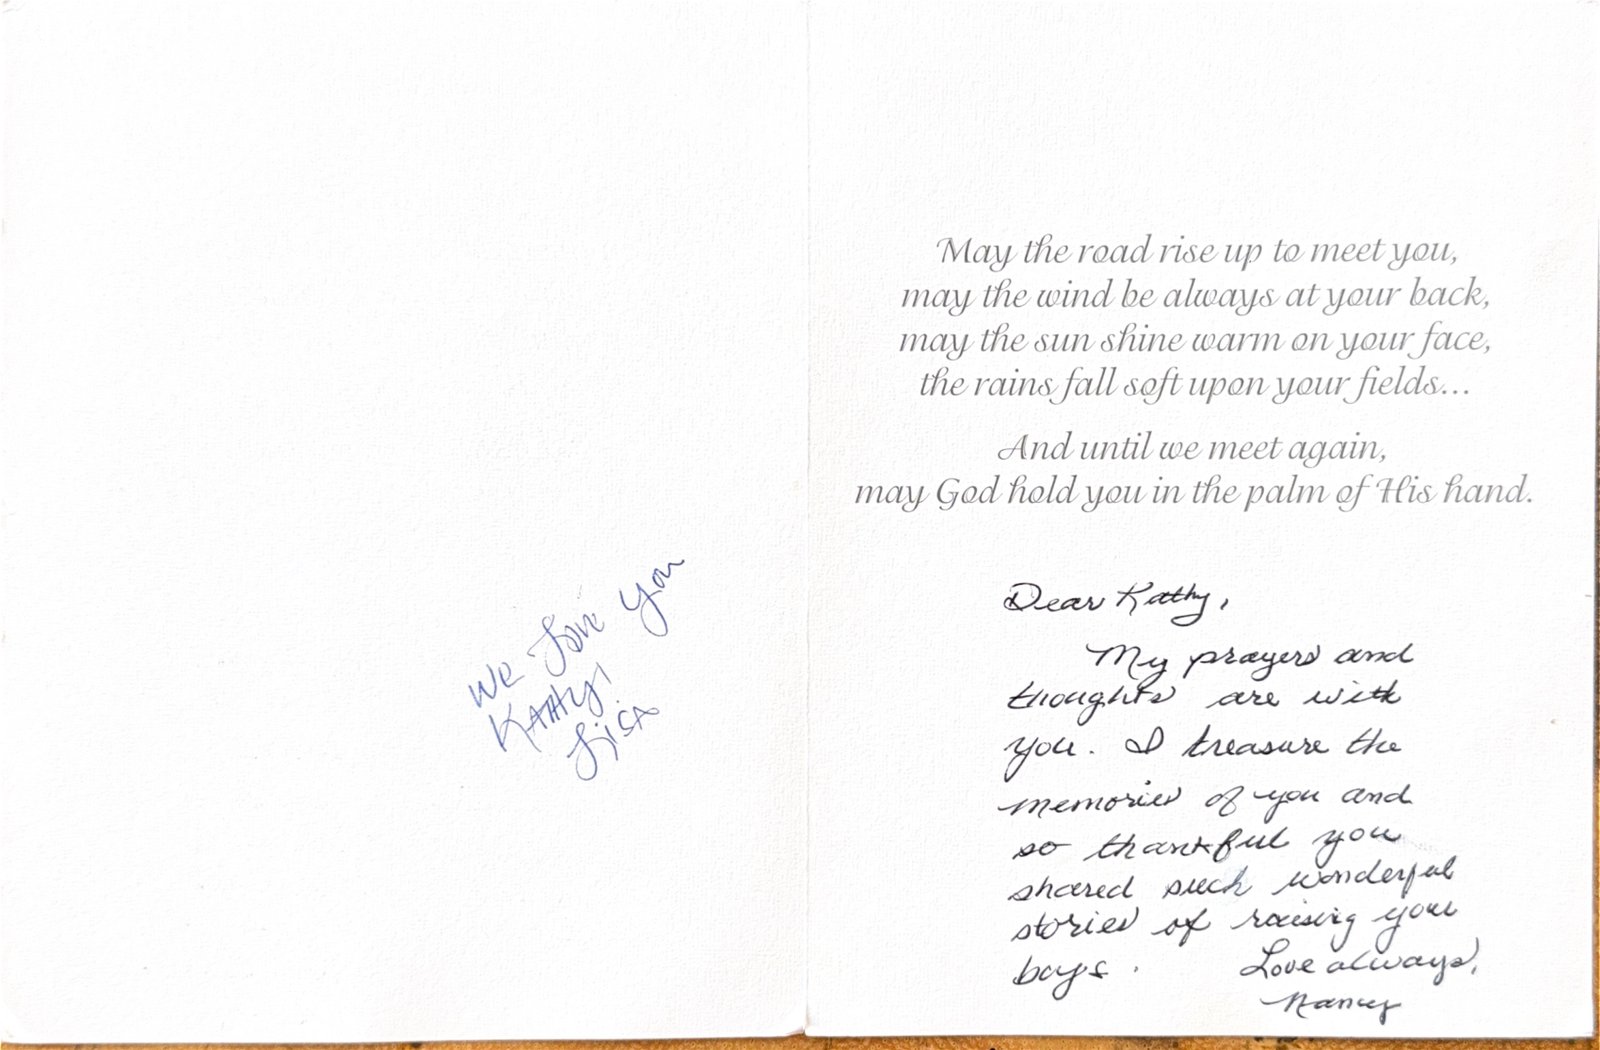 We Love You
KATHY!
LiSA
May the road rise up to meet you,
may the wind be always at your back,
may the sun shine warm on your face,
the rains fall soft upon your fields...
And until we meet again,
may God hold you in the palm of His hand.
Dear Kathy,
My prayers and
thoughts are with
you. I treasure the
memories of you and
so thankful you
shared such wonderful
stories of raising your
boys. Love always,
Nancy